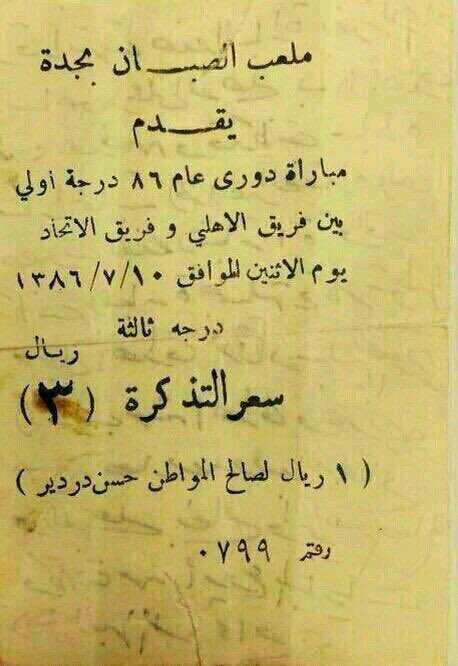 ملعب الصبـــان بجدة
يقـــدم
مباراة دورى عام ٨٦ درجة أولي
بين فريق الاهلي و فريق الاتحاد
يوم الاثنين الموافق ١٣٨٦/٧/١٠
درجه ثالثة
ريـال
سعر التذكرة (٣)
(١ ريال لصالح المواطن حسن دردير)
رقم ٠٧٩٩